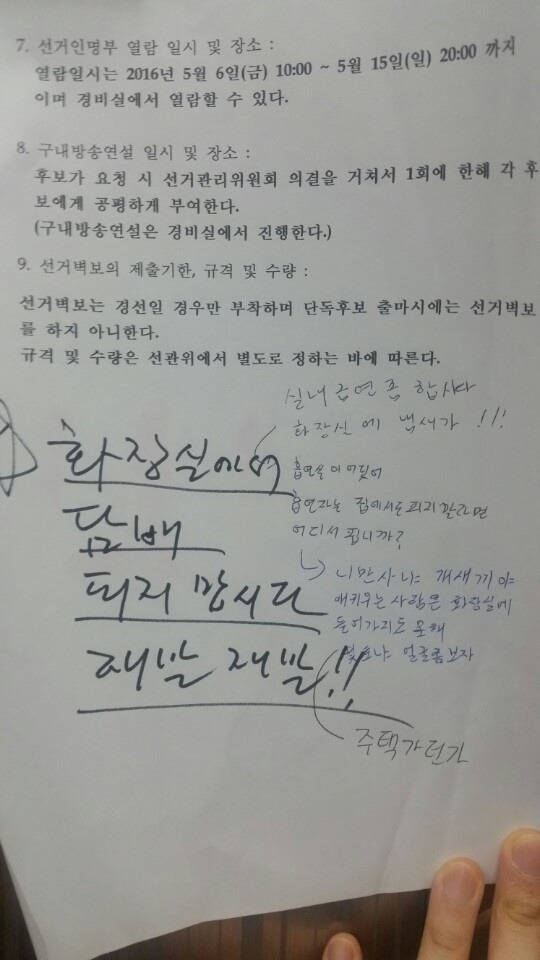 7. 선거인명부 열람 일시 및 장소 :
열람일시는 2016년 5월 6일(금) 10:00 ~ 5월 15일(일) 20:00 까지
이며 경비실에서 열람할 수 있다.
8. 구내방송연설 일시 및 장소 :
후보가 요청 시 선거관리위원회 의결을 거쳐서 1회에 한해 각 후
보에게 공평하게 부여한다.
(구내방송연설은 경비실에서 진행한다.)
9. 선거벽보의 제출기한, 규격 및 수량 :
선거벽보는 경선일 경우만 부착하며 단독후보 출마시에는 선거벽보
를 하지 아니한다.
규격 및 수량은 선관위에서 별도로 정하는 바에 따른다.
실내 금연 좀 합시다
화장실에 냄새가 !!!
화장실에서
담배
피지 맙시다
제발 제발!!
흡연자는 집에서도 피지 말라면
어디서 핍니까?
니만 사냐 개새끼야
애키우는 사람은 화장실에
들어가지도 못해
얼굴좀보자
주택가던가